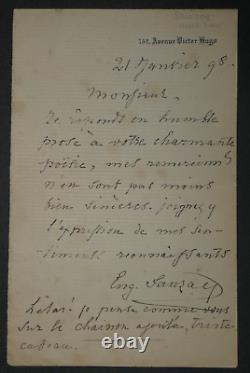 154, Avenue Victor Hugo
21 Janvier 98.
Monsieur,
Je réponds en humble
prose à votre charmante
poësie, mes remerciements
n'en sont pas moins
bien sincères. joignez y
l'expression de mes sen-
timents reconnaissants
Eng.
je pense comme vous
sur le chainon ajouté, triste
cadeau.
www.henze.com